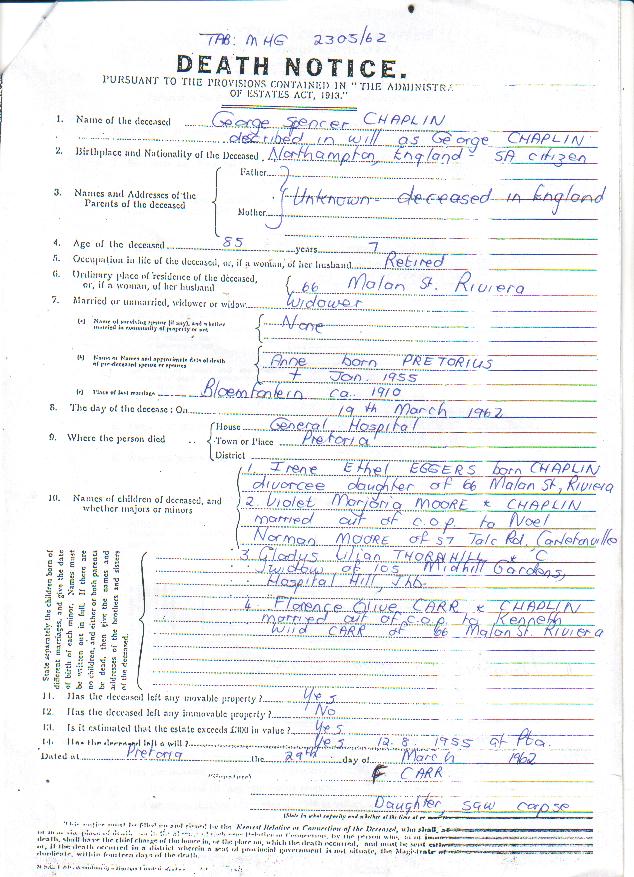 TAB: MHG 2305/62
DEATH NOTICE.
PURSUANT TO THE PROVISIONS CONTAINED IN "THE ADMINISTRA
OF ESTATES ACT, 1913."
1. Name of the deceased George Spencer CHAPLIN
described in will as George CHAPLIN
2. Birthplace and Nationality of the Deceased Northampton, England - SA citizen
Father
3. Names and Addresses of the Parents of the deceased Unknown - deceased in England
Mother
4. Age of the deceased 85 years 7
5. Occupation in life of the deceased, or, if a woman, of her husband Retired
6. Ordinary place of residence of the deceased, or, if a woman, of her husband 66 Malan St. Riviera
7. Married or unmarried, widower or widow Widower
(a) Name of surviving spouse (if any), and whether married in community of property or not None
(b) Name or Names and approximate date of death of pre-deceased spouse or spouses Anne born PRETORIUS
+ Jan 1955
(c) Place of last marriage Bloemfontein ca. 1910
8. The day of the decease; On 19th March 1962
House General Hospital
9. Where the person died Town or Place Pretoria
District
1. Irene Ethel EGGERS born CHAPLIN
divorcee daughter of 66 Malan St, Riviera
10. Names of children of deceased, and whether majors or minors
2. Violet Marjoria MOORE * CHAPLIN
married out of c.o.p. to Noel
Norman MOORE of 57 Talc Rd, Carletonville
3. Gladys Lilian THORNHILL * C
widow of 105 Midhill Gardens,
Hospital Hill, Jhb.
4. Florence Olive CARR * CHAPLIN
married out of c.o.p. to Kenneth
Wild CARR of 66 Malan St. Riviera
State separately the children born of different marriages, and give the date of birth of each minor. Names must be written out in full. If there are no children, and either or both parents be dead, then give the names and addresses of the brothers and sisters of the deceased.
11. Has the deceased left any movable property? Yes
12. Has the deceased left any immovable property? No
13. Is it estimated that the estate exceeds £300 in value? Yes
14. Has the deceased left a will? Yes 12.8.1955 at Pta.
Dated at Pretoria the 29th day of March 1962
(Signature) F CARR
Daughter, saw corpse
(State in what capacity and whether at the time of
This notice must be filled up and signed by the Nearest Relative or Connection of the Deceased, who shall,
death, shall have the chief charge of the house in, or the place on, which the death occurred, and must be sent
or, if the death occurred in a district wherein a seat of provincial government is not situate, the Magistrate of
duplicate, within fourteen days of the death.